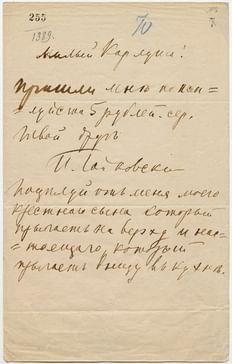 255
1389.
Милый Карлуша!
Пришли мне пожа-
луйста 5 рублей. сер.
Твой другъ
П. Чайковскі
Поцелуй отъ меня моего
крестнаго сына который
прыгаетъ на верху и нас-
тоящаго, который
прыгаетъ внизу въ кухнѣ.